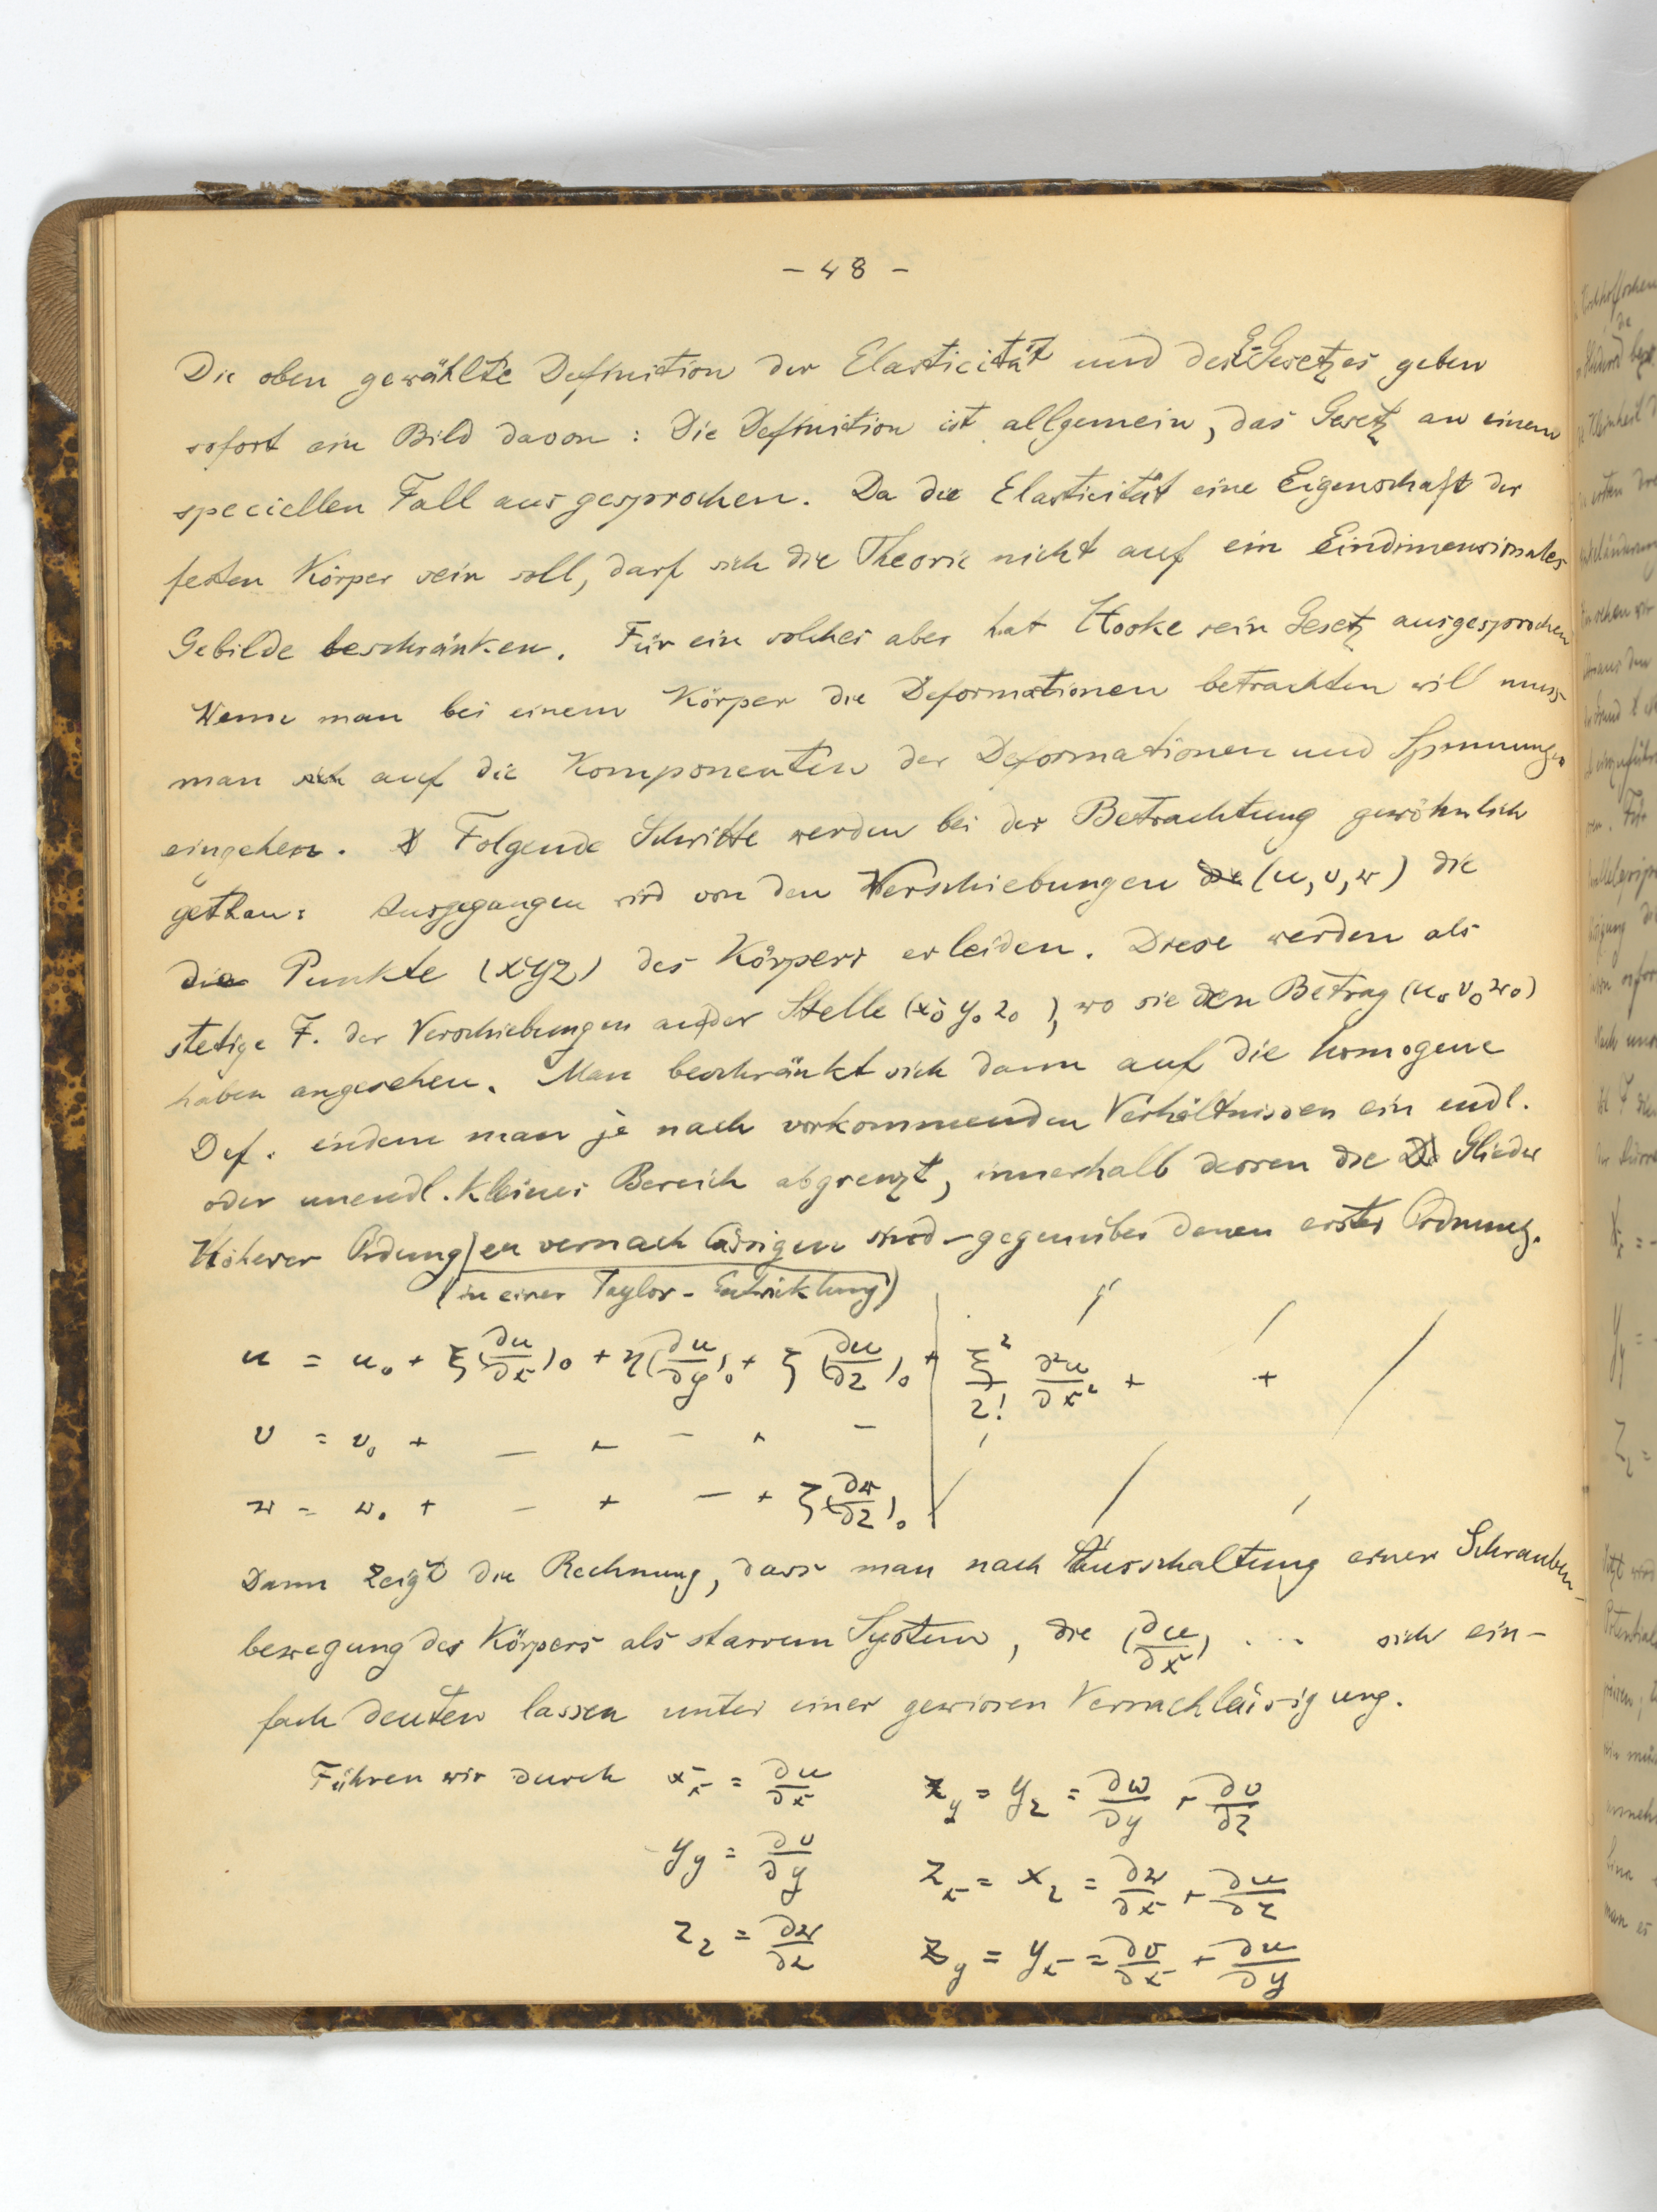 - 48 -
Die oben gewählte Definition der Elasticität und des E-Gesetzes geben
sofort ein Bild davon : Die Definition ist allgemein, das Gesetz an einem
speciellen Fall ausgesprochen. Da die Elasticität eine Eigenschaft der
festen Körper sein soll, darf sich die Theorie nicht auf ein Eindimensionales
Gebilde beschränken. Für ein solches aber hat Hooke sein Gesetz ausgesprochen
Wenn man bei einem Körper die Deformationen betrachten will muss
man sich auf die Komponenten der Deformationen und Spannungen
eingehen. Folgende Schritte werden bei der Betrachtung gewöhnlich
gethan: Ausgegangen wird von den Verschiebungen die (u, v, w) die
die Punkte (xyz) des Körpers erleiden. Diese werden als
stetige F. der Verschiebungen an der Stelle (x₀ y₀ z₀), wo sie den Betrag (u₀ v₀ w₀)
haben angesehen. Man beschränkt sich dann auf die homogene
Def. indem man je nach vorkommenden Verhältnissen ein endl.
oder unendl. kleines Bereich abgrenzt, innerhalb dessen die Glieder
Höherer Ordnung zu vernachlässigen sind - gegenüber denen erster Ordnung.
(in einer Taylor-Entwicklung)
u = u₀ + ξ(∂u/∂x)₀ + η(∂u/∂y)₀ + ζ(∂u/∂z)₀ + | ξ²/2! ∂²u/∂x² + +
v = v₀ + — + — + —
w = w₀ + — + — + ζ(∂w/∂z)₀
Dann zeigt die Rechnung, dass man nach Ausschaltung einer Schrauben-
bewegung des Körpers als starrem System, die (∂u/∂x) ... sich ein-
fach deuten lassen unter einer gewissen Vernachlässigung.
Führen wir durch x_x = ∂u/∂x z_y = y_z = ∂w/∂y + ∂v/∂z
y_y = ∂v/∂y z_x = x_z = ∂w/∂x + ∂u/∂z
z_z = ∂w/∂z z_y = y_x = ∂v/∂x + ∂u/∂y